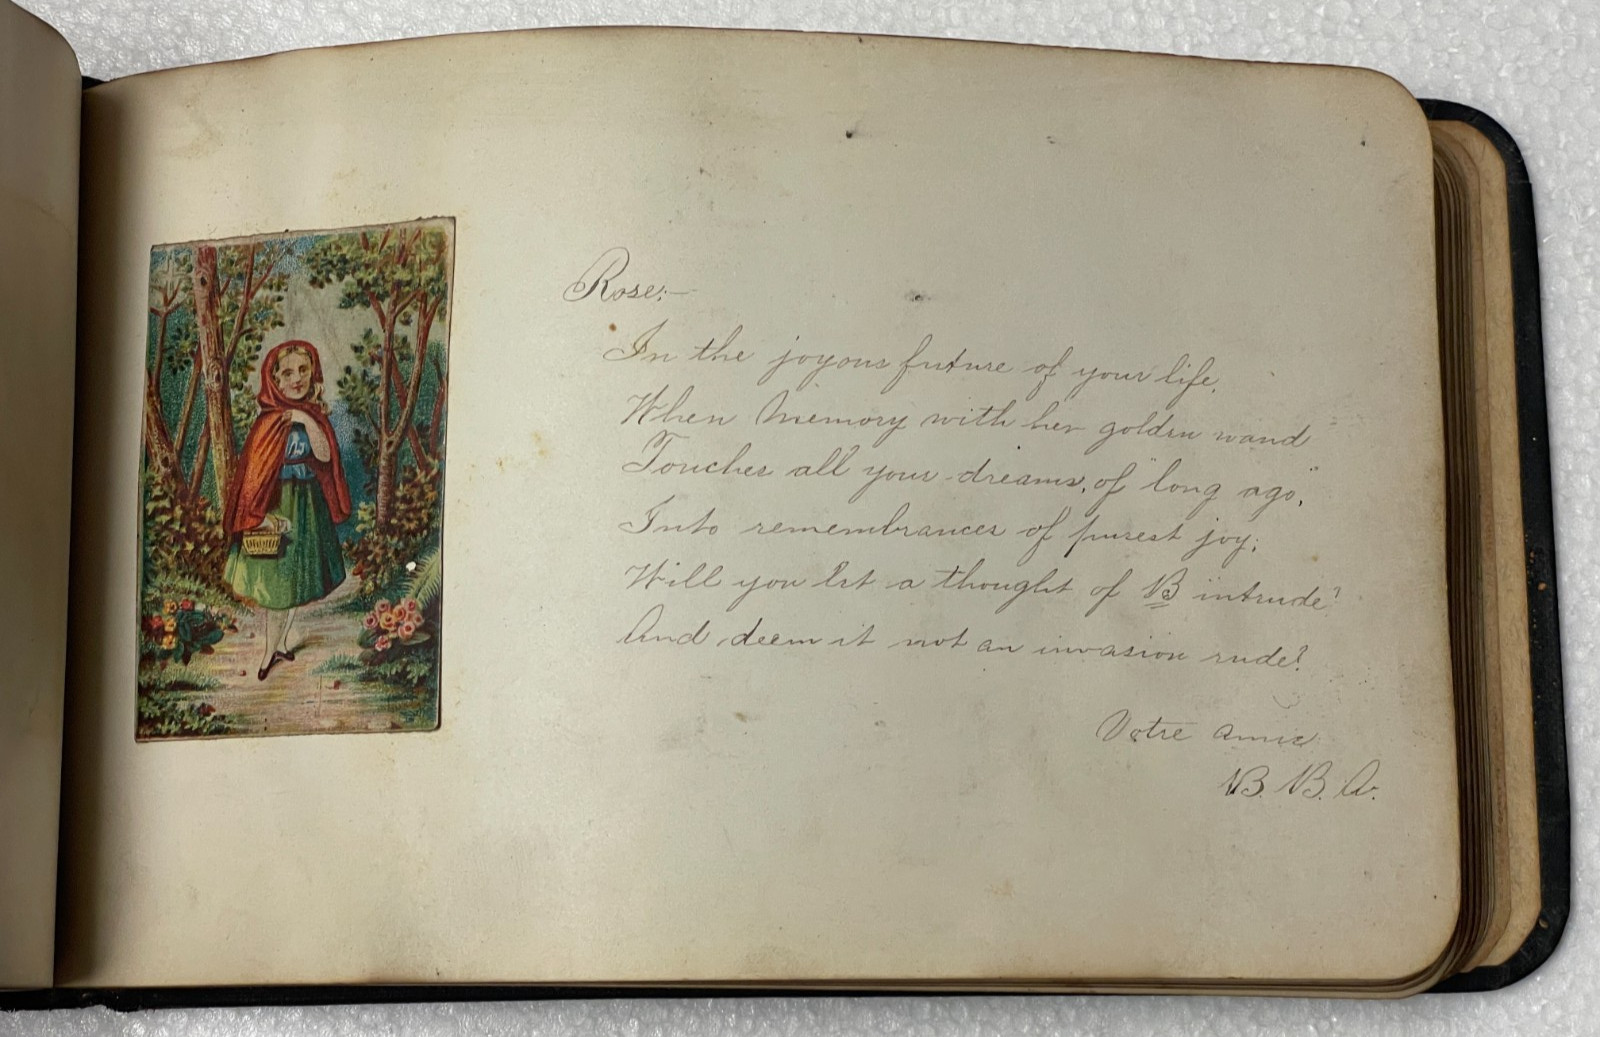 Rose:—
In the joyous future of your life,
When Memory with her golden wand
Touches all your dreams, of "long ago",
Into remembrances of purest joy;
Will you let a thought of B intrude?
And deem it not an invasion rude?
Votre amie
B. B. A.